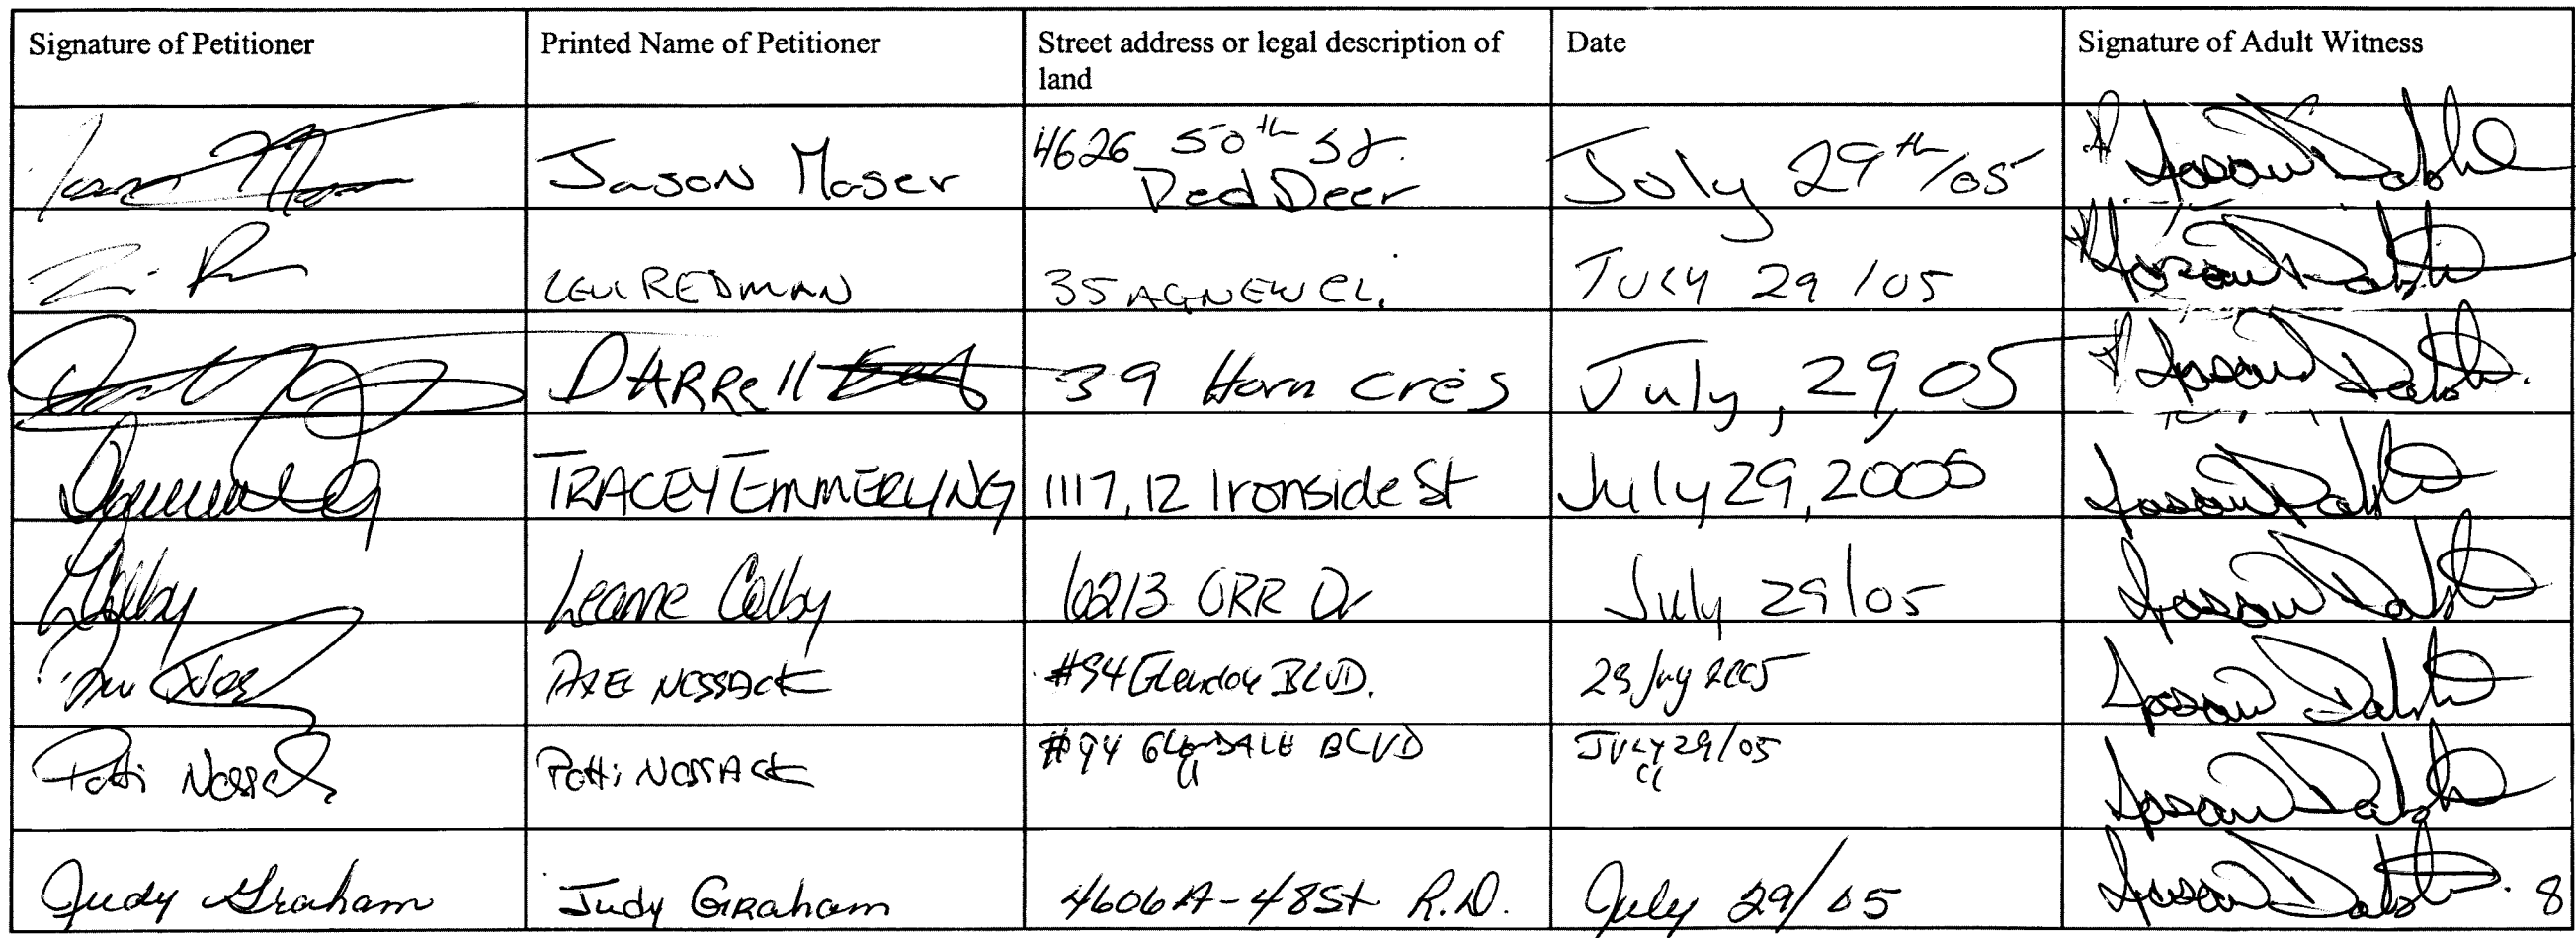 Signature of Petitioner
Printed Name of Petitioner
Street address or legal description of
land
Date
Signature of Adult Witness
Jason Moser
4626 50th St.
Red Deer
July 29th/05
LEVI REDMAN
35 AGNEW CL.
JULY 29 /05
DARRell
39 Horn cres
July, 29, 05
TRACEY EMMERLING
1117, 12 Ironside St
July 29, 2005
Leanne Colby
6213 ORR Dr
July 29/05
AXEL NOSSACK
#94 Glendale BLVD.
29 July 2005
Patti Nossack
Patti NOSSACK
#94 GLENDALE BLVD
JULY 29/05
Judy Graham
Judy Graham
4606A-48St R.D.
July 29/05
8